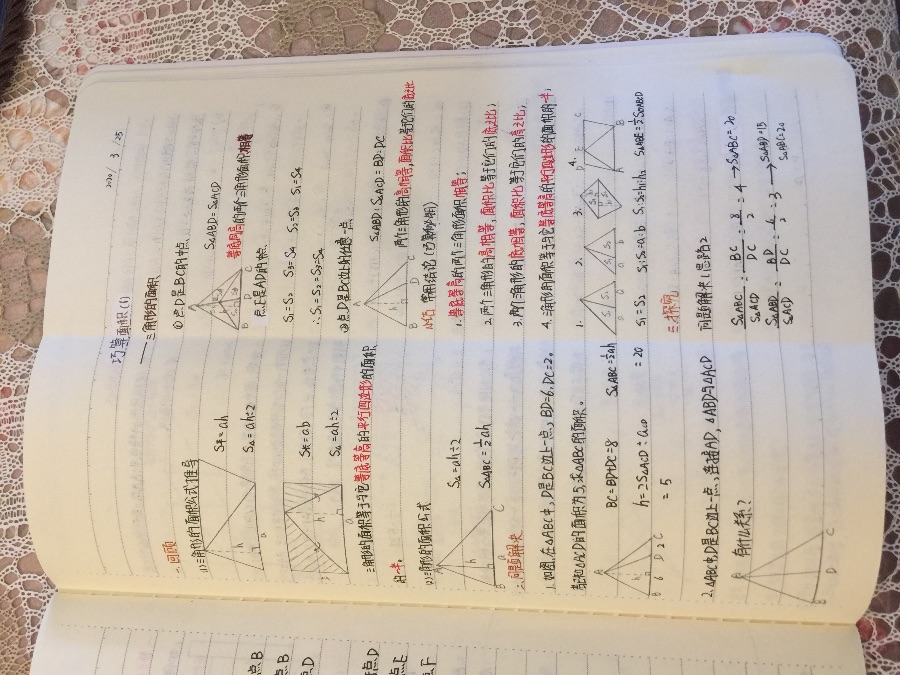 2020 / 3 / 25
巧算面积(1)
——三角形的面积
一.回顾
(1)三角形的面积公式推导
S平=ah
S△=ah÷2
S长=ab
S△=ah÷2
三角形的面积等于与它等底等高的平行四边形的面积
的一半。
(2)三角形的面积公式
S△=ah÷2
S△ABC=½ah
二.问题解决
1.如图,在△ABC中,D是BC边上一点,BD=6,DC=2。
若知△ACD的面积为5,求△ABC的面积。
BC=BD+DC=8
h=2S△ACD÷a△CD
=5
S△ABC=½ah
=20
2.△ABC中,D是BC边上一点,连接AD,△ABD与△ACD
有什么关系?
①点D是BC的中点
S△ABD=S△ACD
等底同高的两个三角形面积相等
点E是AD的中点
S1=S2 S3=S4 S2=S3 S1=S4
∴S1=S2=S3=S4
②点D是BC边上的任意一点
S△ABD:S△ACD=BD:DC
两个三角形的高相等,面积比等于它们的底之比
小结 常用结论(巧算妙用)
1.等底等高的两个三角形面积相等;
2.两个三角形的高相等,面积比等于它们的底之比;
3.两个三角形的底相等,面积比等于它们的高之比;
4.三角形的面积等于与它等底等高的平行四边形的面积的一半;
1. 2. 3. 4.
S1=S2 S1:S2=a:b S1:S2=h1:h2 S△ABE=½S▱ABCD
三.探究
问题解决1思路2
S△ABC/S△ACD=BC/DC=8/2=4→S△ABC=20
S△ABD/S△ACD=BD/DC=6/2=3→S△ABD=15
S△ABC=20
点B
点B
点D
点D
点E
点F